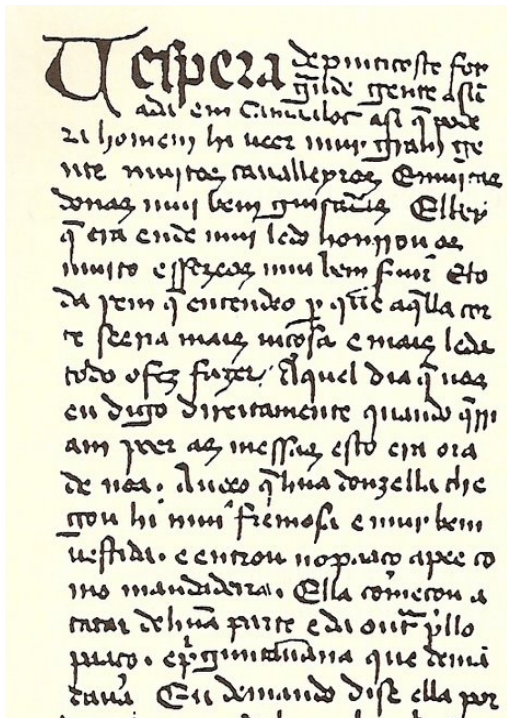 Vespera de pinticoste foy
grãde gente asũ
ada em Camaalot asi q̃ pode
ra homem hi ueer mui gram ge
nte muitos caualleyros E muitas
donas mui bem guisadas El Rey
q̃ era ende mui ledo honrrou os
muito e ffezeos mui bem seruir E to
da rem q̃ entendeo per que aq̃lla cor
te seeria mais uiçosa e mais leda
todo o fez fazer. Aquel dia q̃ uos
eu digo direitamente quando q̃ri
am poer as mesas esto era ora
de noa. Aueeo q̃ hũa donzella che
gou hi mui fremosa e mui bem
uestida. e entrou no paaço a pee co
mo mandadeira. Ella começou a
catar de hũa parte e da outra pello
paaço. e pregũtauãna que demã
daua Eu demando disse ella por